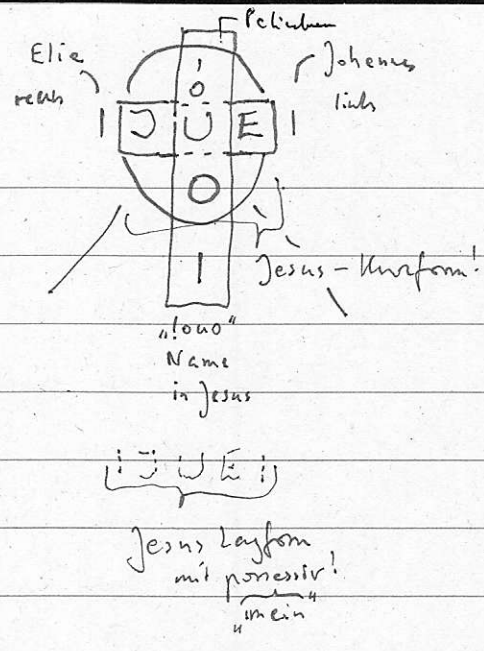 Elia
rechts
Johannes
links
o
| J U E |
O
|
Jesus - Kurzform!
„louo“
Name
in Jesus
J U E
Jesus Langform
mit possessiv!
„mein“